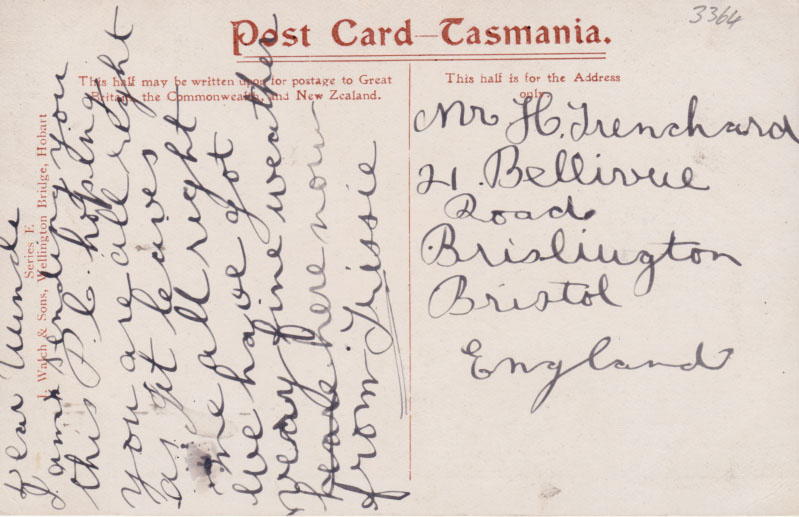 3364
Post Card—Tasmania.
This half may be written upon for postage to Great
Britain, the Commonwealth, and New Zealand.
This half is for the Address
only.
Series E
J. Walch & Sons, Wellington Bridge, Hobart
Dear
I am sending you
this P.C. hoping
you are all right
as it leaves
me all right
We have got
very fine weather
here now
from Trissie
Mr H. Trenchard
21. Bellivue
Road
Brislington
Bristol
England